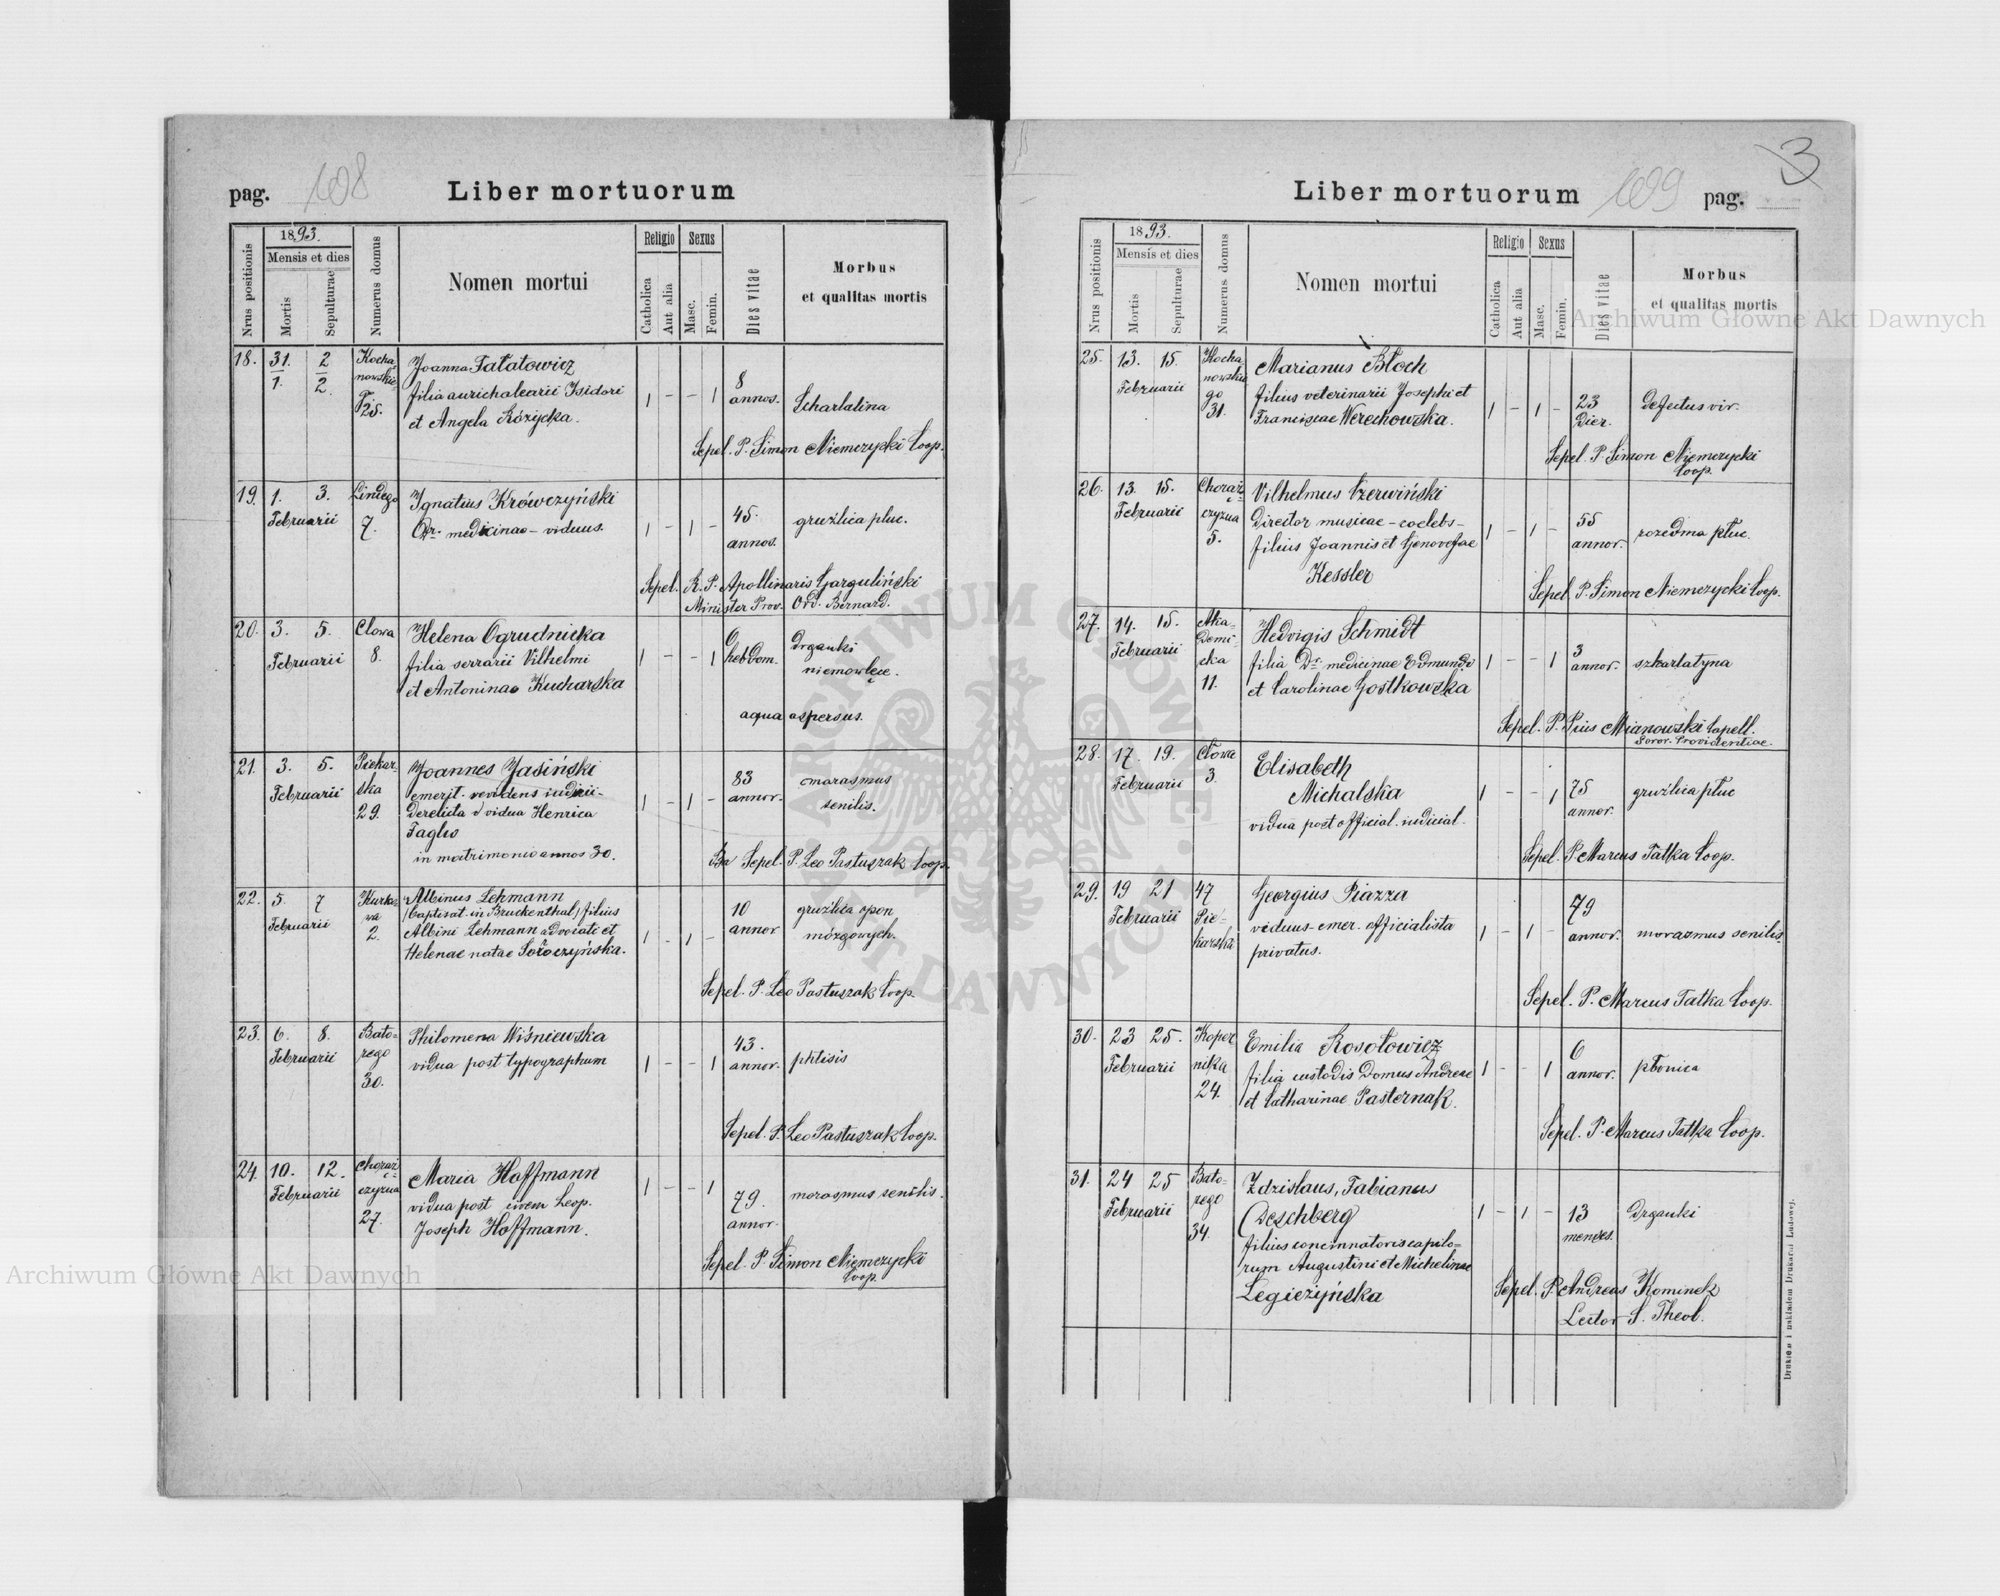 pag. 108 Liber mortuorum
Nrus positionis
1893.
Mensis et dies
Mortis
Sepulturae
Numerus domus
Nomen mortui
Religio
Catholica
Aut alia
Sexus
Masc.
Femin.
Dies vitae
Morbus
et qualitas mortis
18. 31. 2 Kocha
1. 2. nowskie
25.
Joanna Tatatowicz
filia aurichalcarii Isidori
et Angela Różycka.
1 - - 1
8
annos.
Scharlatina
Sepel. P. Simon Niemczycki Coop.
19. 1. 3. Lindego
Februarii 7.
Ignatius Krówczyński
Dr. medicinae - viduus.
1 - 1 -
45.
annos.
gruźlica płuc.
Sepel. R. P. Apollinaris Garguliński
Minister Prov. Ord. Bernard.
20. 3. 5. Clowa
Februarii 8.
Helena Ogrudnicka
filia serrarii Vilhelmi
et Antoninae Kucharska
1 - - 1
6
hebdom.
Drgawki
niemowlęce.
aqua aspersus.
21. 3. 5. Piekar-
Februarii ska
29.
Joannes Jasiński
emerit. revidens
Derelicta vidua Henrica
Taglio
in matrimonio annos 30.
1 - 1 -
83
annor.
marasmus
senilis.
Sepel. P. Leo Pastuszak Coop.
22. 5. 7 Kurko-
Februarii wa
2.
Albinus Lehmann
/baptisat. in Bruckenthal/ filius
Albini Lehmann advocati et
Helenae natae Soroczyńska.
1 - 1 -
10
annor
gruźlica opon
mózgowych.
Sepel. P. Leo Pastuszak Coop.
23. 6. 8. Bato-
Februarii rego
30.
Philomena Wiśniewska
vidua post typographum
1 - - 1
43.
annor.
phtisis
Sepel. P. Leo Pastuszak Coop.
24. 10. 12. Chorąż
Februarii czyzna
27.
Maria Hoffmann
vidua post civem Leop.
Joseph Hoffmann.
1 - - 1
79.
annor.
morasmus senilis.
Sepel. P. Simon Niemczycki
Coop.
Liber mortuorum 109 pag. 3
Nrus positionis
1893.
Mensis et dies
Mortis
Sepulturae
Numerus domus
Nomen mortui
Religio
Catholica
Aut alia
Sexus
Masc.
Femin.
Dies vitae
Morbus
et qualitas mortis
25. 13. 15. Kocha
Februarii nowskie
go
31.
Marianus Błoch
filius veterinarii Josephi et
Franciscae Werechowska.
1 - 1 -
23
Dier.
Defectus vir.
Sepel. P. Simon Niemczycki
Coop.
26. 13. 15. Chorąż
Februarii czyzna
5.
Vilhelmus Czerwiński
Director musicae - coelebs -
filius Joannis et Genovefae
Kessler
1 - 1 -
55
annor.
rozedma płuc.
Sepel. P. Simon Niemczycki Coop.
27. 14. 15. Aka-
Februarii demi-
cka
11.
Hedvigis Schmidt
filia Dr. medicinae Edmundo
et Carolinae Gostkowska
1 - - 1
3
annor.
szkarlatyna
Sepel. P. Pius Mianowski Capell.
Soror. Providentiae.
28. 17. 19. Cłowa
Februarii 3.
Elisabeth
Michalska
vidua post official. iudicial.
1 - - 1
75
annor.
gruźlica płuc
Sepel. P. Marcus Tatka Coop.
29. 19 21 47
Februarii Pie-
karska
Georgius Piazza
viduus - emer. officialista
privatus.
1 - 1 -
79
annor.
morazmus senilis.
Sepel. P. Marcus Tatka Coop.
30. 23 25. Koper
Februarii nika
24.
Emilia Rosołowicz
filia custodis Domus Andreae
et Catharinae Pasternak.
1 - - 1
6
annor.
płonica
Sepel. P. Marcus Tatka Coop.
31. 24 25 Bato-
Februarii rego
34.
Zdzislaus, Fabianus
Oeschberg
filius concinnatoris capilo-
rum Augustini et Michelinae
Legieżyńska
1 - 1 -
13
menses.
Drgawki
Sepel. P. Andreas Kominek
Lector S. Theol.
Drukiem i nakładem Drukarni Ludowej.
Archiwum Główne Akt Dawnych
Archiwum Główne Akt Dawnych
ARCHIWUM GŁÓWNE AKT DAWNYCH